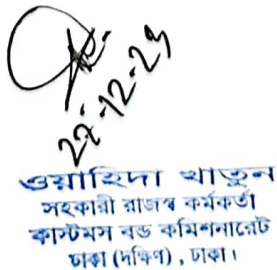 22-12-25
ওয়াহিদা খাতুন
সহকারী রাজস্ব কর্মকর্তা
কাস্টমস বন্ড কমিশনারেট
ঢাকা (দক্ষিণ), ঢাকা।